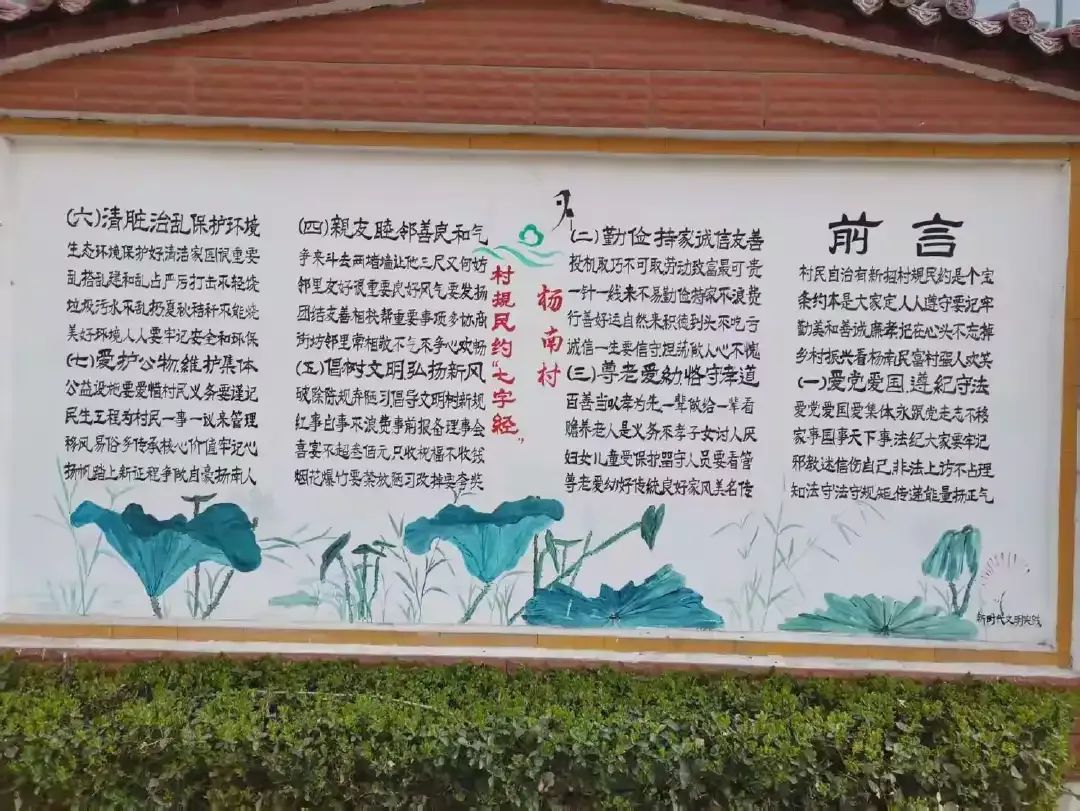 前言
村民自治有新招村规民约是个宝
条约本是大家定人人遵守要记牢
勤美和善诚廉孝记在心头不忘掉
乡村振兴看杨南民富村强人欢笑
(一)爱党爱国.遵纪守法
爱党爱国爱集体永跟党走志不移
家事国事天下事法纪大家要牢记
邪教迷信伤自己.非法上访不占理
知法守法守规矩传递能量扬正气
(二)勤俭持家诚信友善
投机取巧不可取劳动致富最可贵
一针一线来不易勤俭持家不浪费
行善好运自然来积德到头不吃亏
诚信一生要信守坦荡做人心不愧
(三)尊老爱幼恪守孝道
百善当以孝为先一辈做给一辈看
赡养老人是义务不孝子女讨人厌
妇女儿童受保护留守人员要看管
尊老爱幼好传统良好家风美名传
杨南村
村规民约"七字经"
(四)親友睦邻善良和气
争来斗去两堵墙让他三尺又何妨
邻里友好很重要良好风气要发扬
团结友善相扶帮重要事项多协商
街坊邻里常相敬不气不争心欢畅
(五)倡树文明弘扬新风
破除陈规弃陋习倡导文明树新规
红事白事不浪费事前报备理事会
喜宴不超叁佰元只收祝福不收钱
烟花爆竹要禁放陋习改掉莫奢柴
(六)清脏治乱保护环境
生态环境保护好清洁家园很重要
乱搭乱建和乱占严厉打击不轻饶
垃圾污水不乱扔夏秋秸秆不能烧
美好环境人人要牢记安全和环保
(七)爱护公物.维护集体
公益设施要爱惜村民义务要谨记
民生工程为村民一事一议来管理
移风易俗乡传承核心价值牢记心
扬帆踏上新征程争做自豪扬南人
新时代文明实践